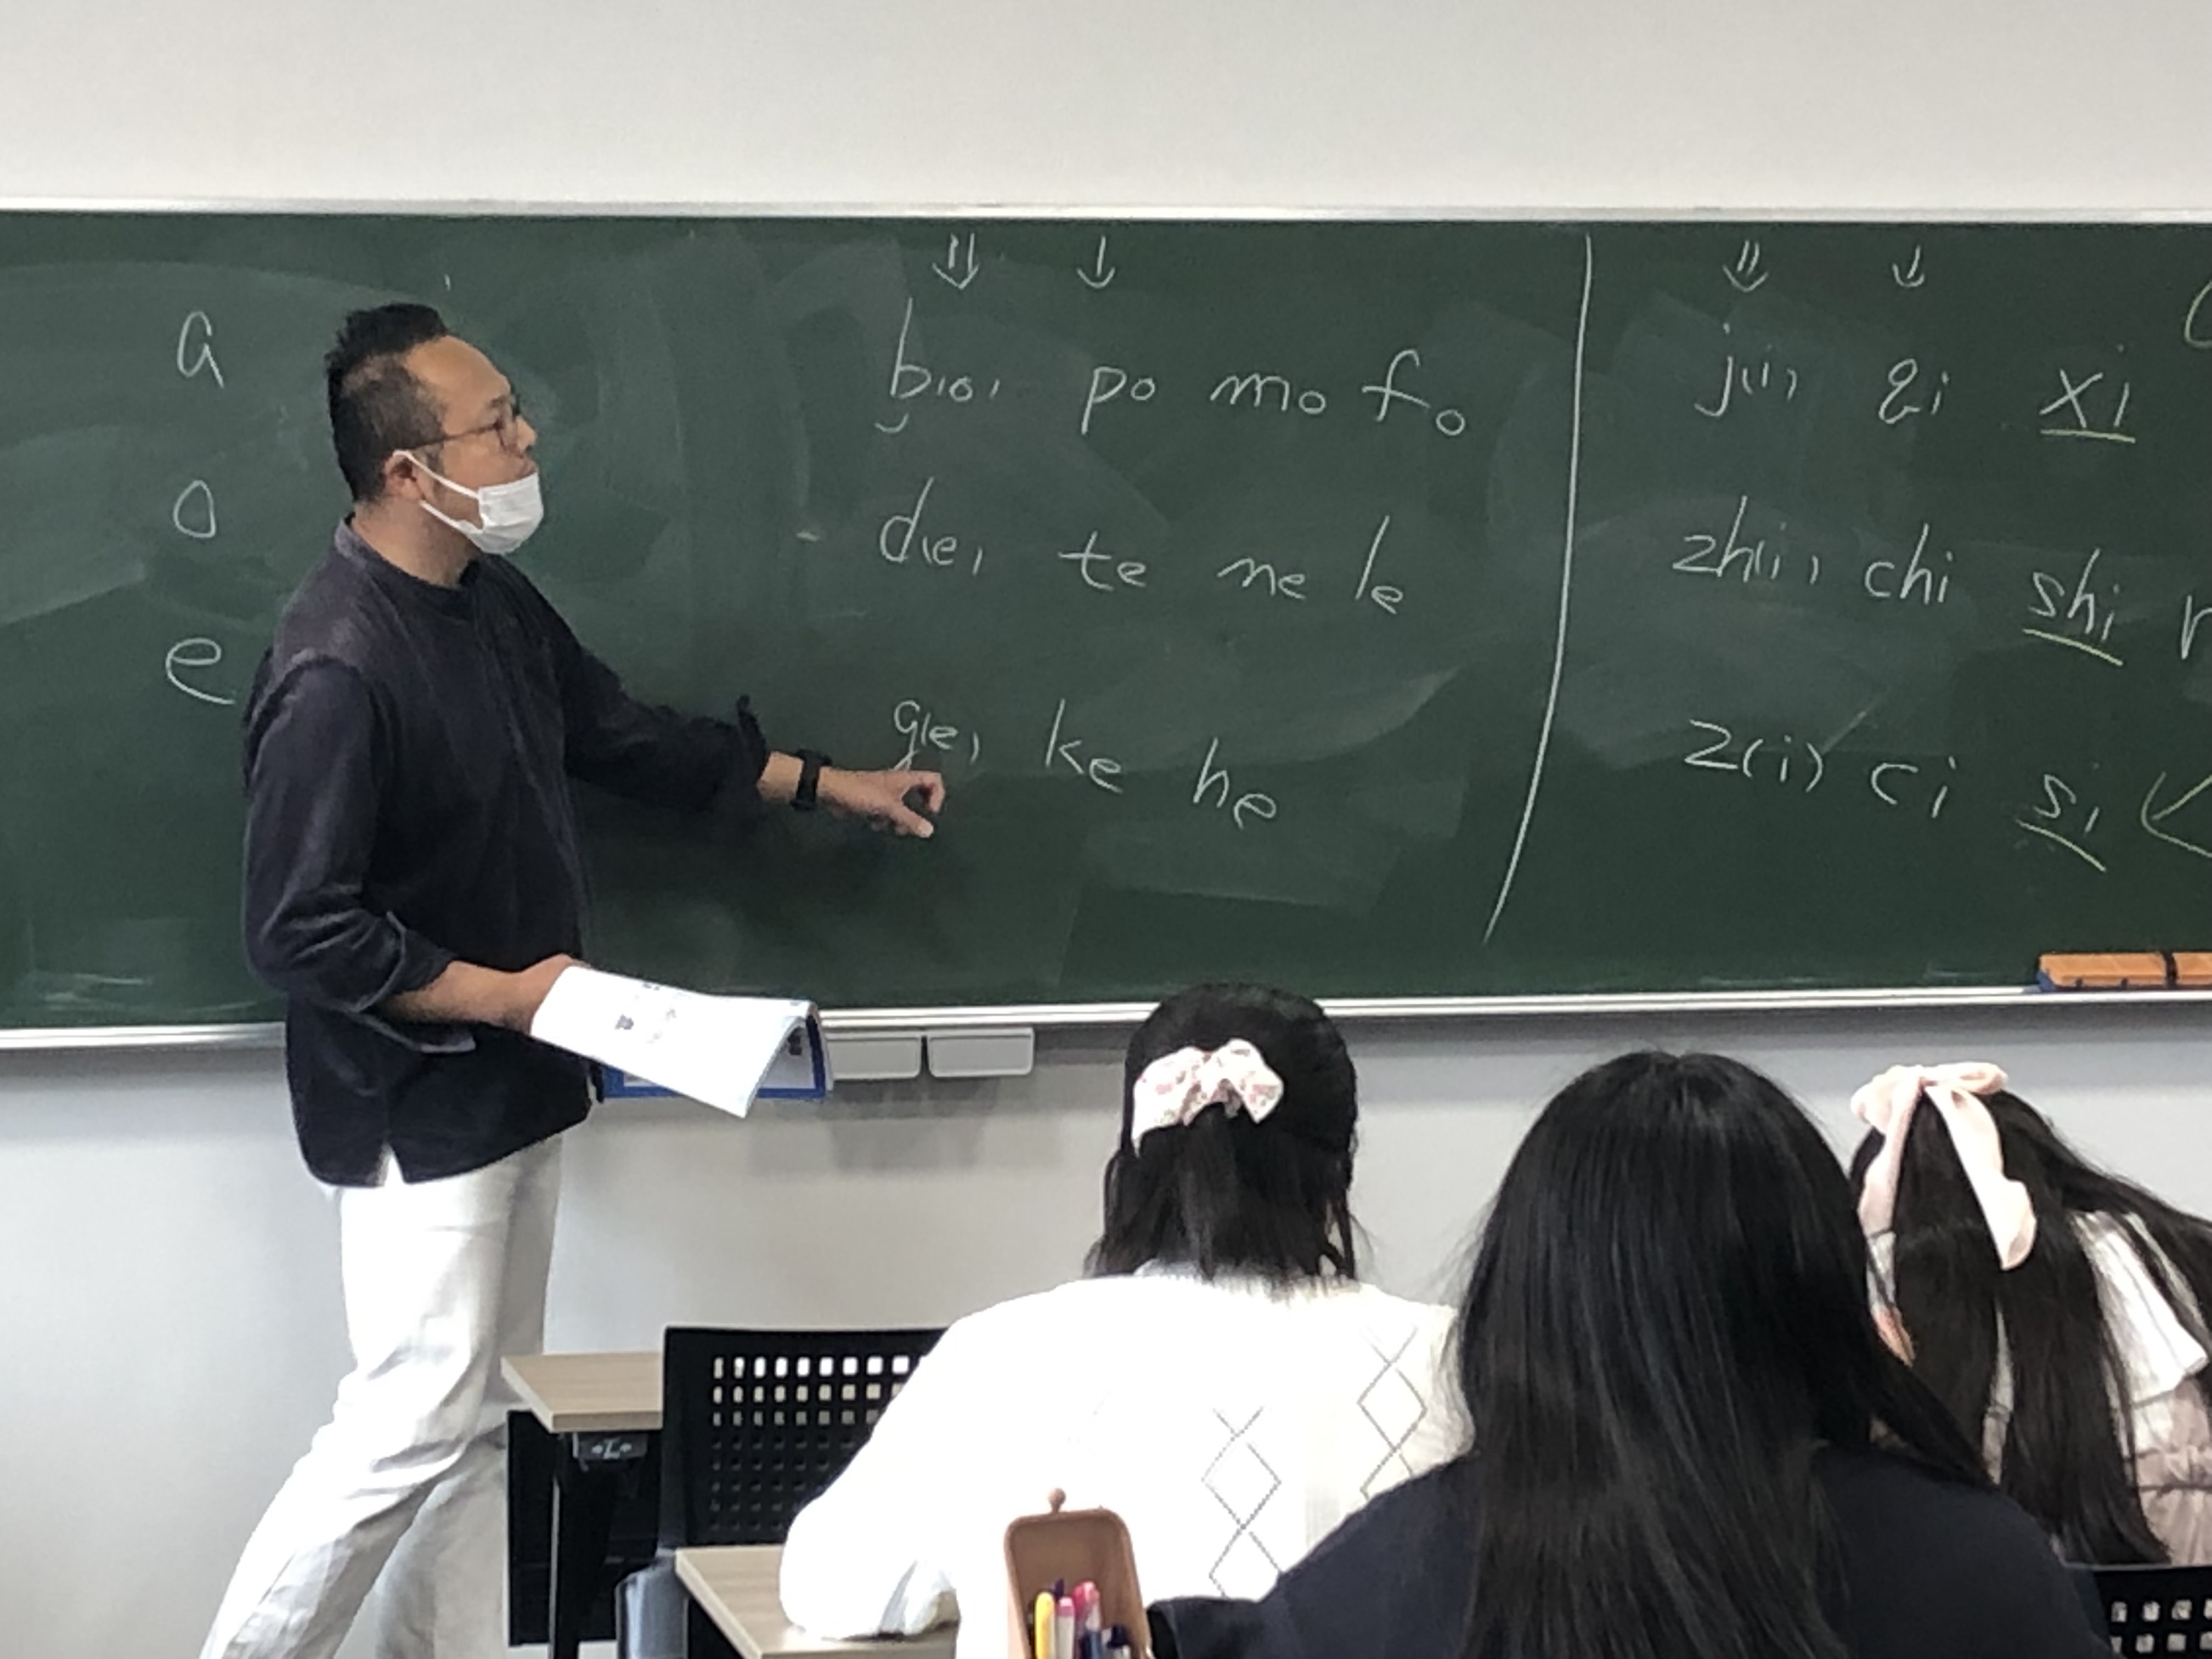 a
o
e
⇓ ↓
b(o) po mo fo
d(e) te ne le
g(e) ke he
⇓ ↓
j(i) qi xi
zh(i) chi shi r
z(i) ci si